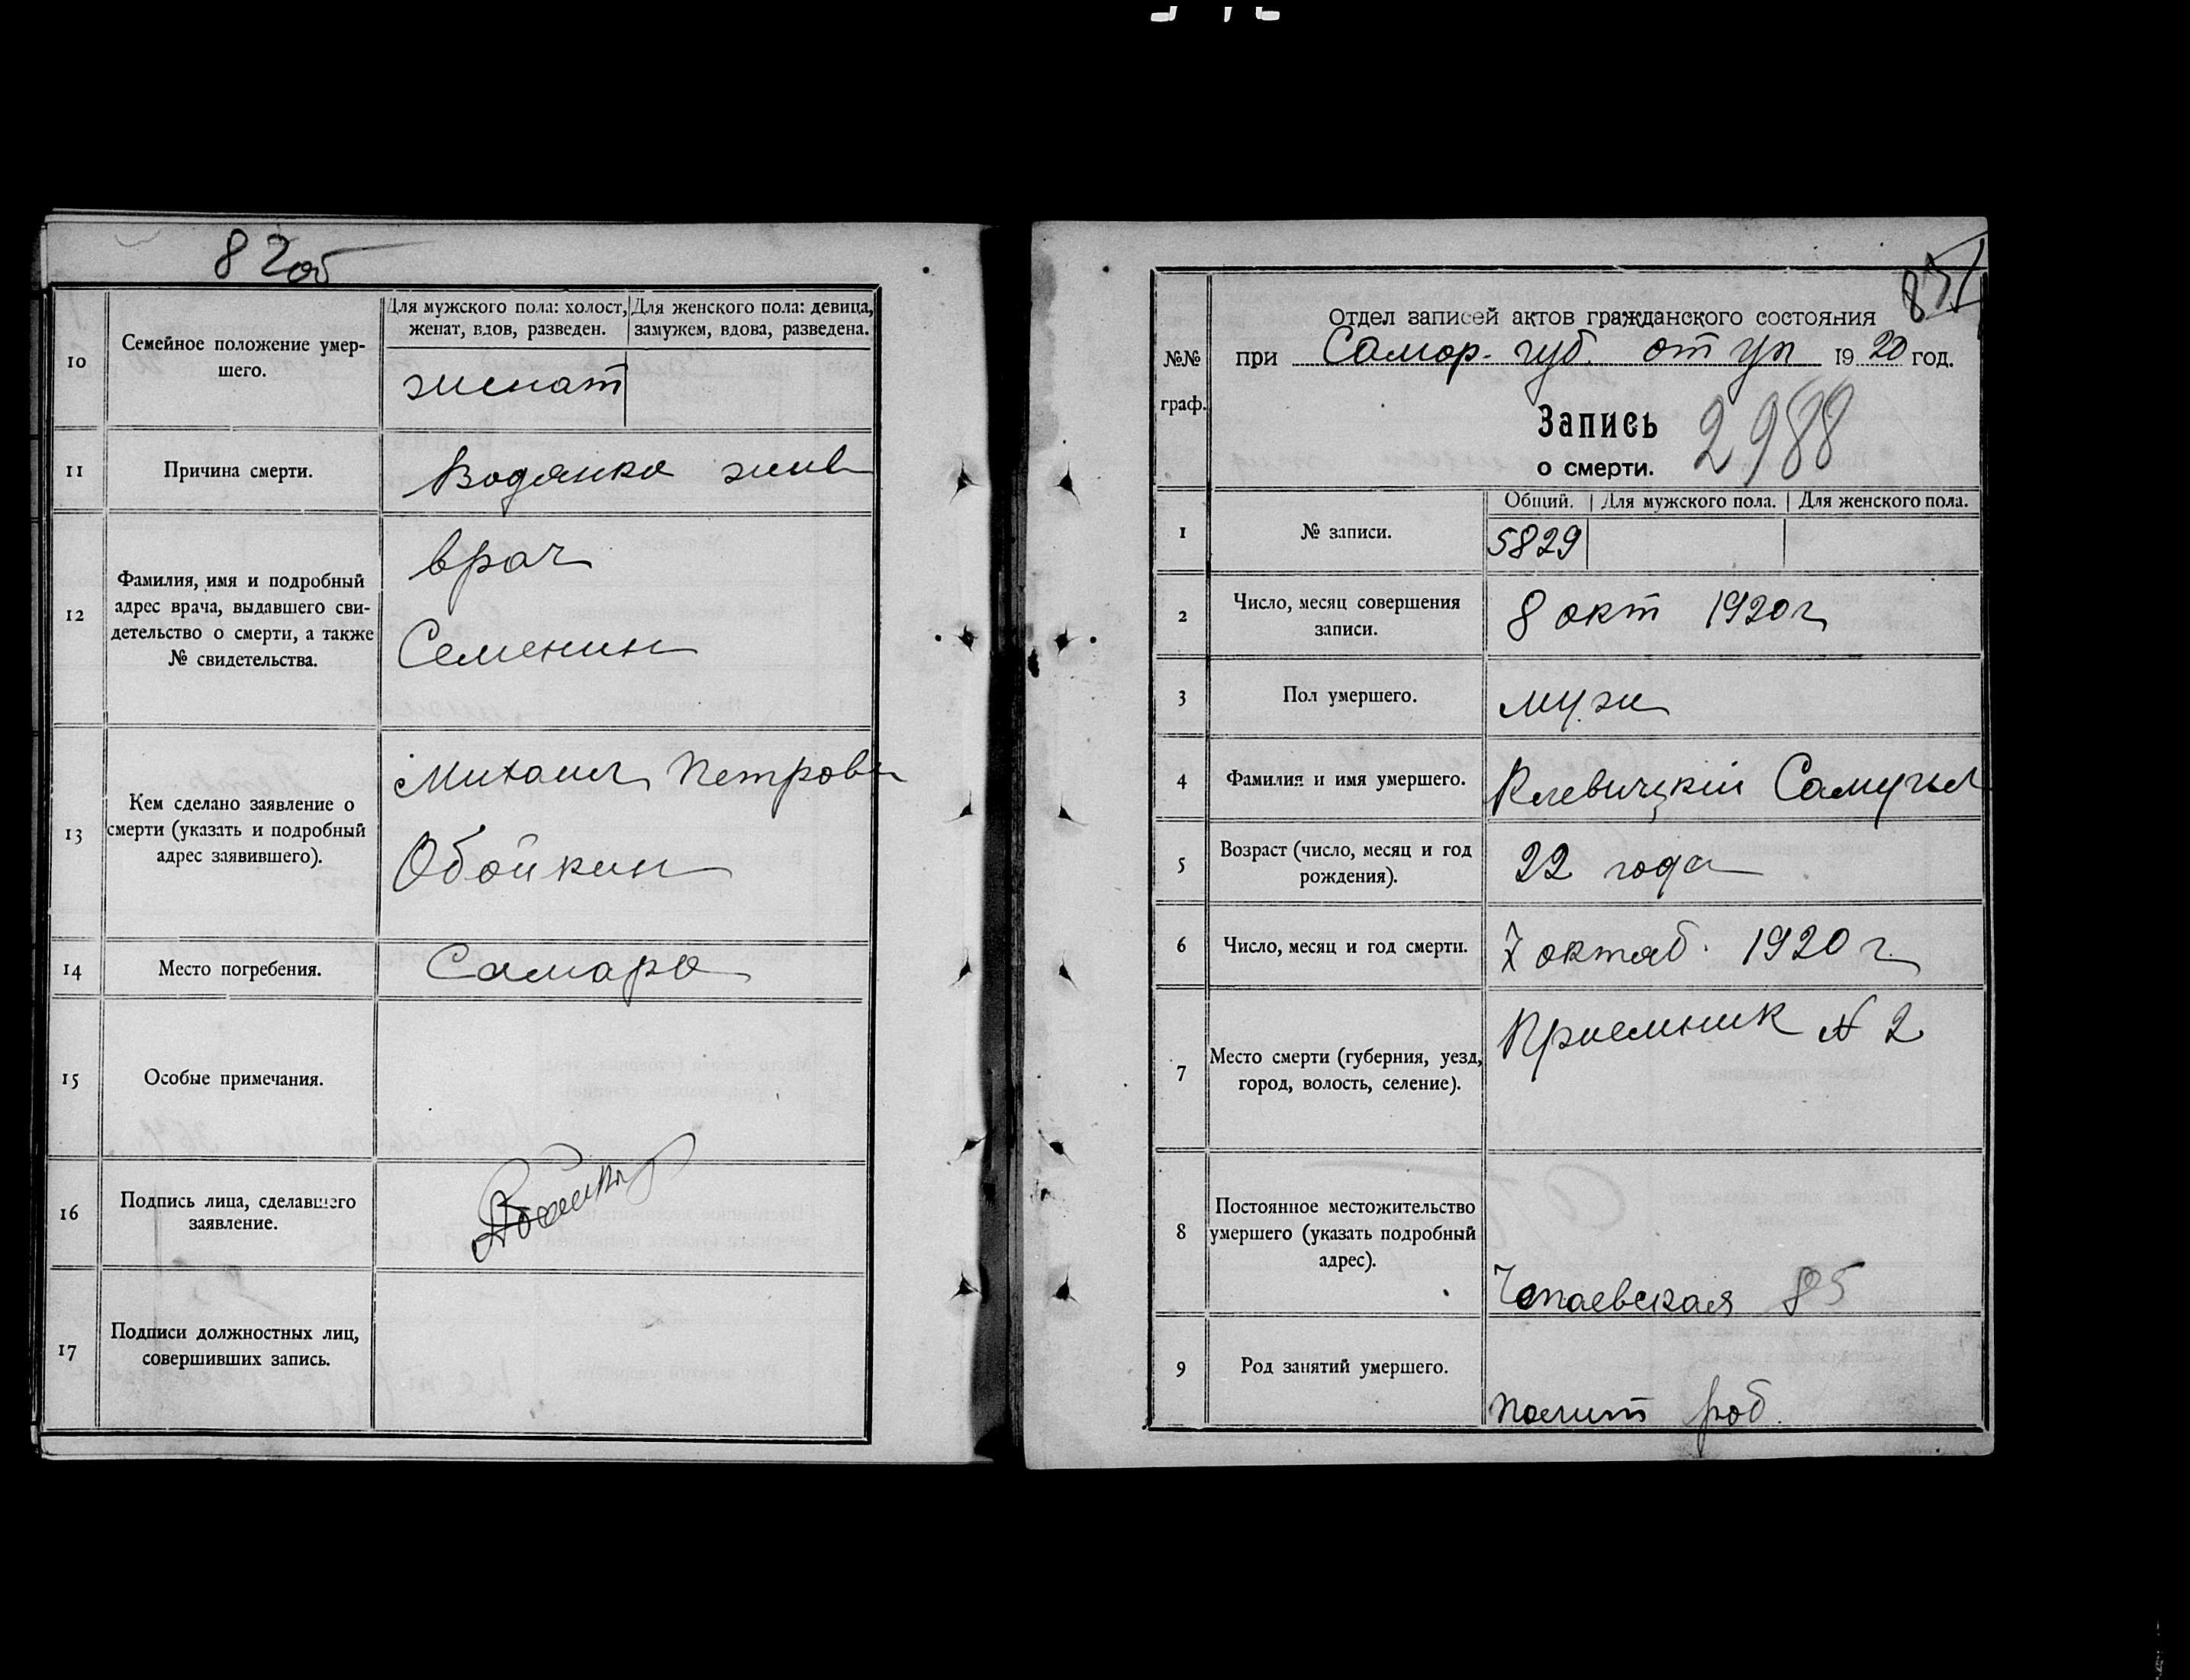 82об
10
Семейное положение умер-
шего.
Для мужского пола: холост,
женат, вдов, разведен.
Для женского пола: девица,
замужем, вдова, разведена.
женат
11
Причина смерти.
Водянка жив
12
Фамилия, имя и подробный
адрес врача, выдавшего сви-
детельство о смерти, а также
№ свидетельства.
врач
Семенин
13
Кем сделано заявление о
смерти (указать и подробный
адрес заявившего).
Михаил Петрович
Обойкин
14
Место погребения.
Самара
15
Особые примечания.
16
Подпись лица, сделавшего
заявление.
17
Подписи должностных лиц,
совершивших запись.
№№
граф.
Отдел записей актов гражданского состояния
при Самар. губ. отуп 1920 год.
Запись
о смерти.
2988
1
№ записи.
Общий. Для мужского пола. Для женского пола.
5829
2
Число, месяц совершения
записи.
8 окт 1920 г
3
Пол умершего.
муж
4
Фамилия и имя умершего.
Клевицкій Самуил
5
Возраст (число, месяц и год
рождения).
22 года
6
Число, месяц и год смерти.
7 октяб. 1920 г.
7
Место смерти (губерния, уезд,
город, волость, селение).
Приемник № 2
8
Постоянное местожительство
умершего (указать подробный
адрес).
Чапаевская 85
9
Род занятий умершего.
полит раб.